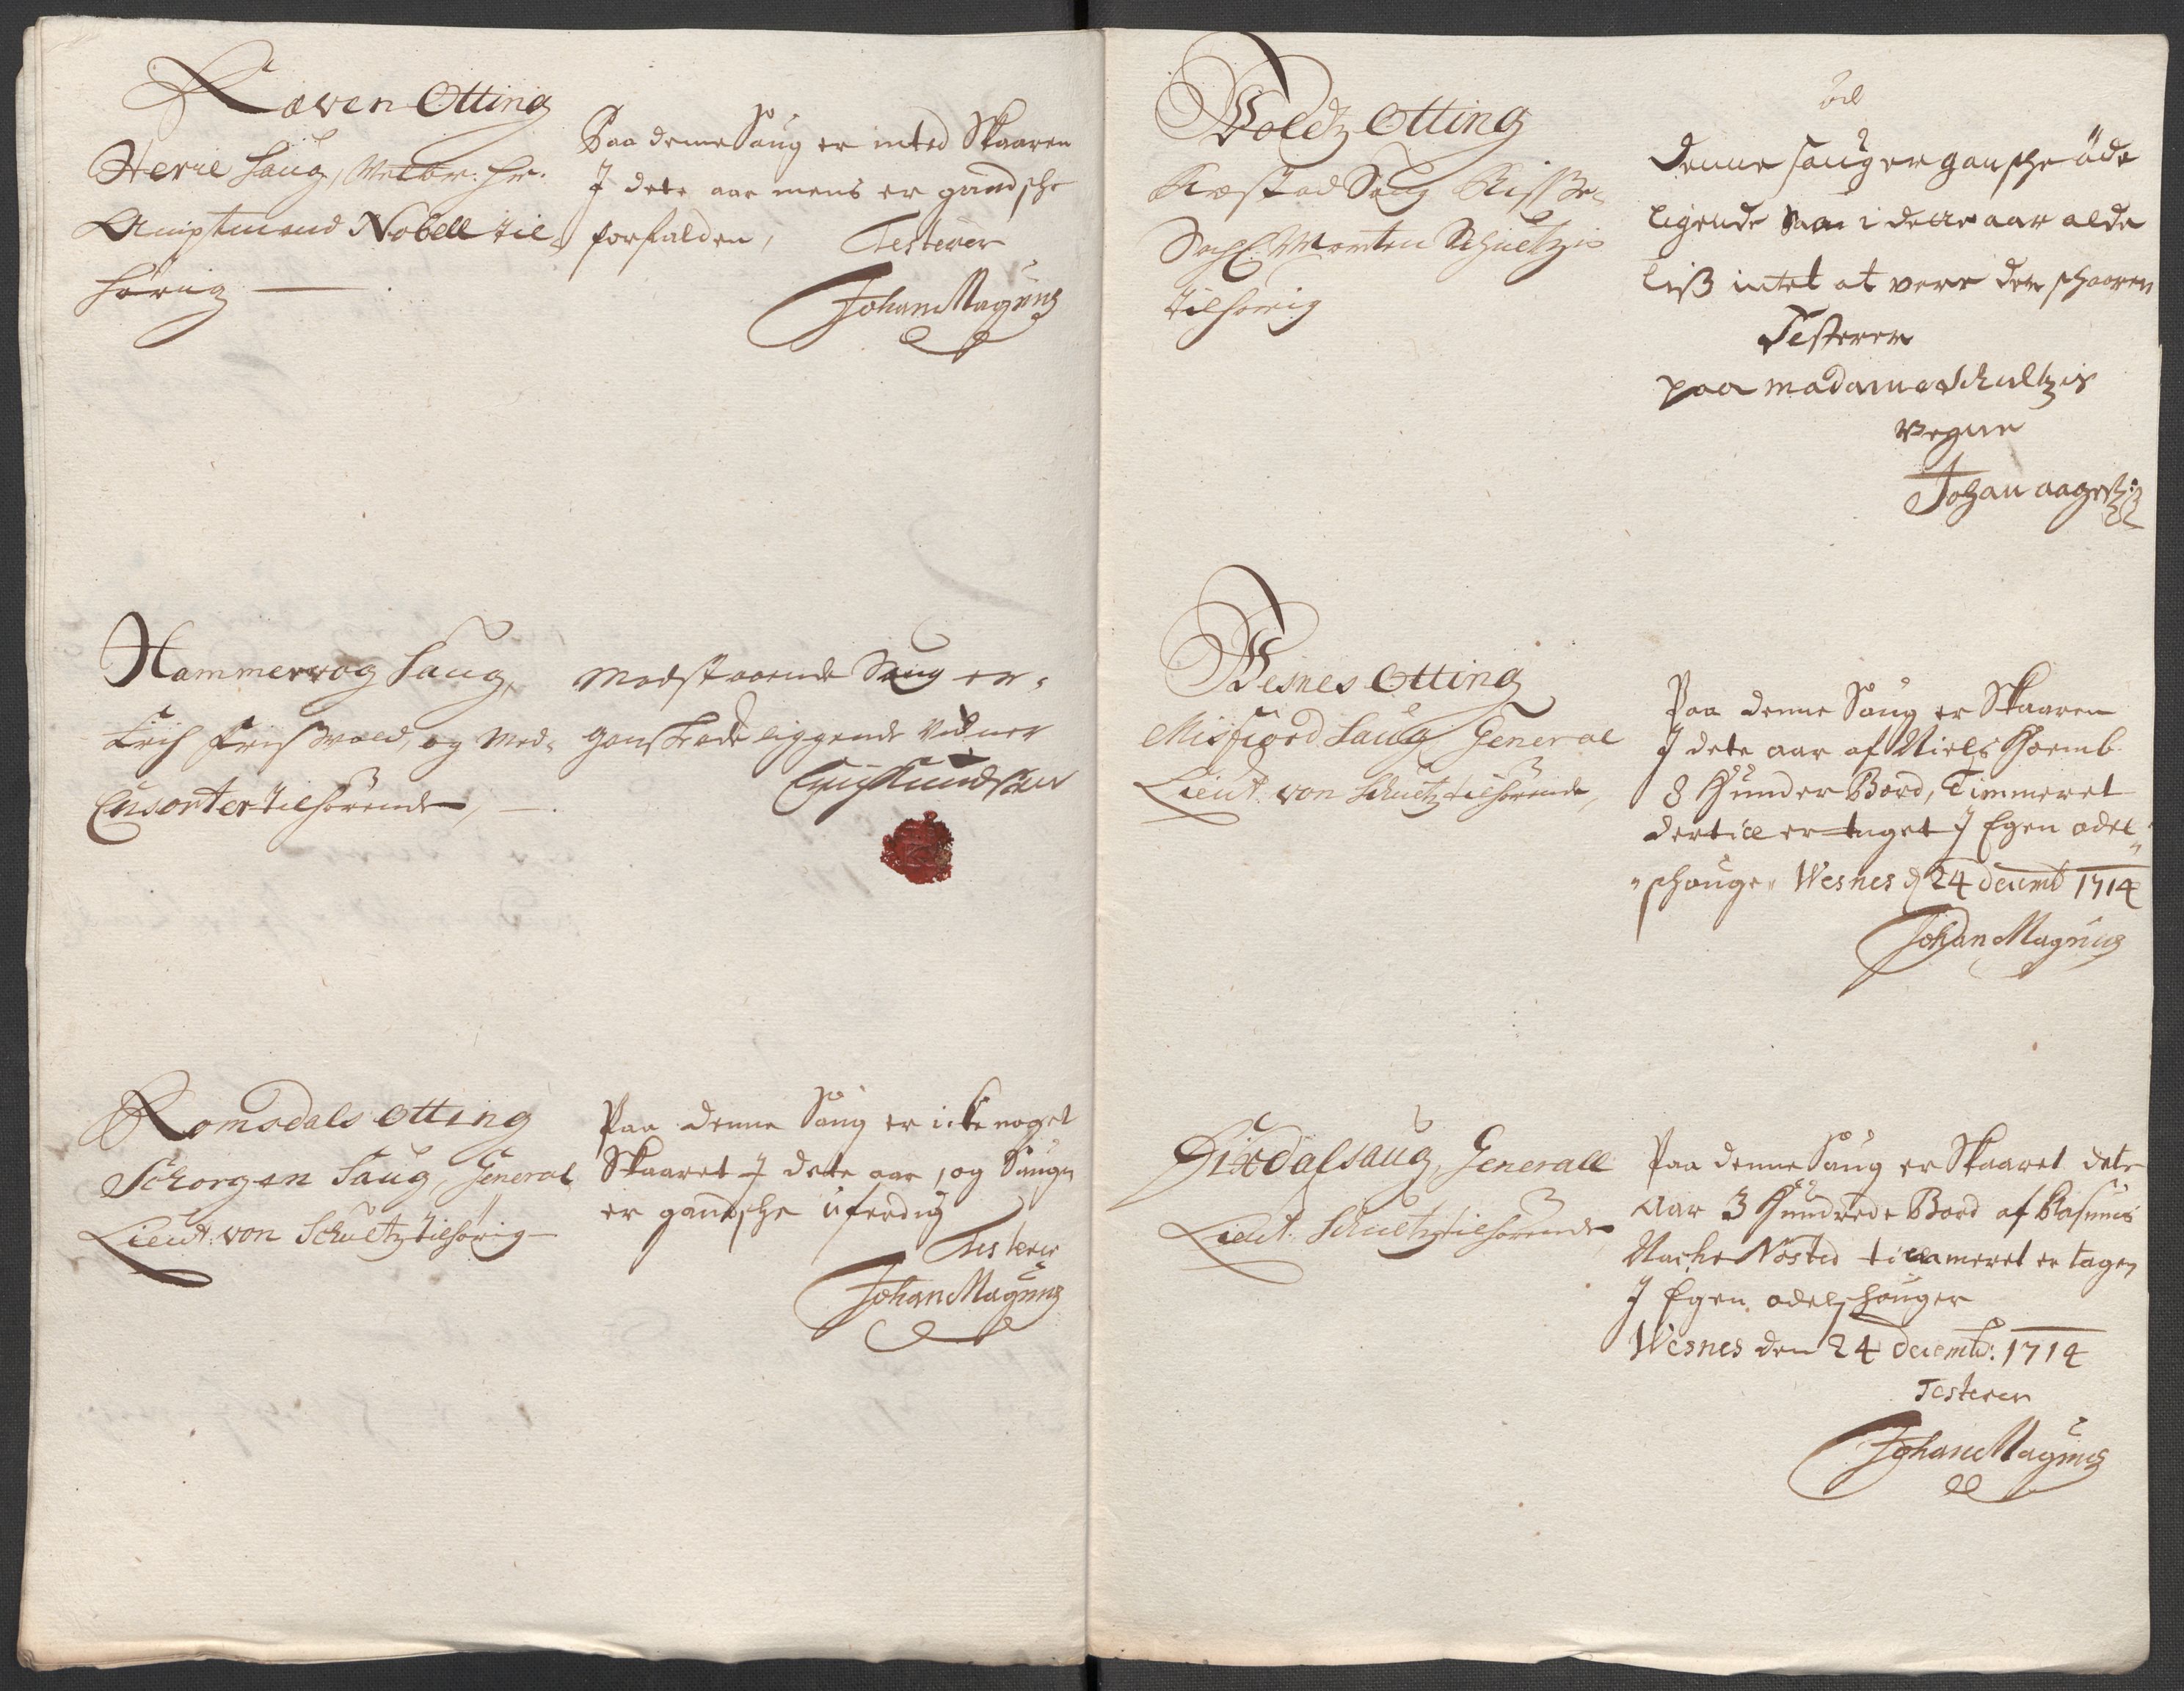 Ræven Otting
Herie Saug, Welbr: Hr.
Amptmand Nobell til-
hørig
Paa denne Saug er inted Skaaren
I dete aar mens er gandsche
forfalden,
Testerer
Johan Magnus
Hammervog Saug,
Erich Frisvold, og Med-
Consorter tilhørende,
Modstaaende Saug er
ganske øde liggende vidner
Knudsen
Romsdals Otting
Schorgen Saug, General
Lieut: von Schultz tilhørig
Paa denne Saug er icke noget
Skaaret I dete aar, og Saugen
er gandsche ufærdig
Testerer
Johan Magnus
Woldtz Otting
Saug
Sahl. Morten Schultzis
tilhørig
Denne saug er gansche øde
ligende Saa i dette aar alde
liß intet at vere der schaaren
Testerer
paa madame Schultzis
vegne
Johan
Wesnes Otting
Misfiord Saug General
Lieut. von Schultz tilhørende,
Paa denne Saug er Skaaren
I dete aar af Niels
8 Hunder Bord, Timmeret
dertill er taget I Egen odel
schouge Wesnes d 24 decemb 1714
Johan Magnus
Dixdal saug, Generall
Lieut. Schultz tilhørende
Paa denne Saug er Skaaret dete
Aar 3 Hundrede Bord af Rasmus
Nøsted timmeret er tagen
I Egen odelschouger
Wesnes den 24 decemb: 1714
Testerer
Johan Magnus